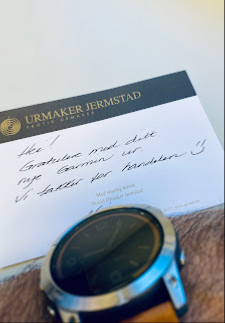 URMAKER JERMSTAD
Hei!
Gratulerer med ditt
nye Garmin ur.
Vi takker for handelen :)
Med vennlig hilsen
Urmaker Jermstad